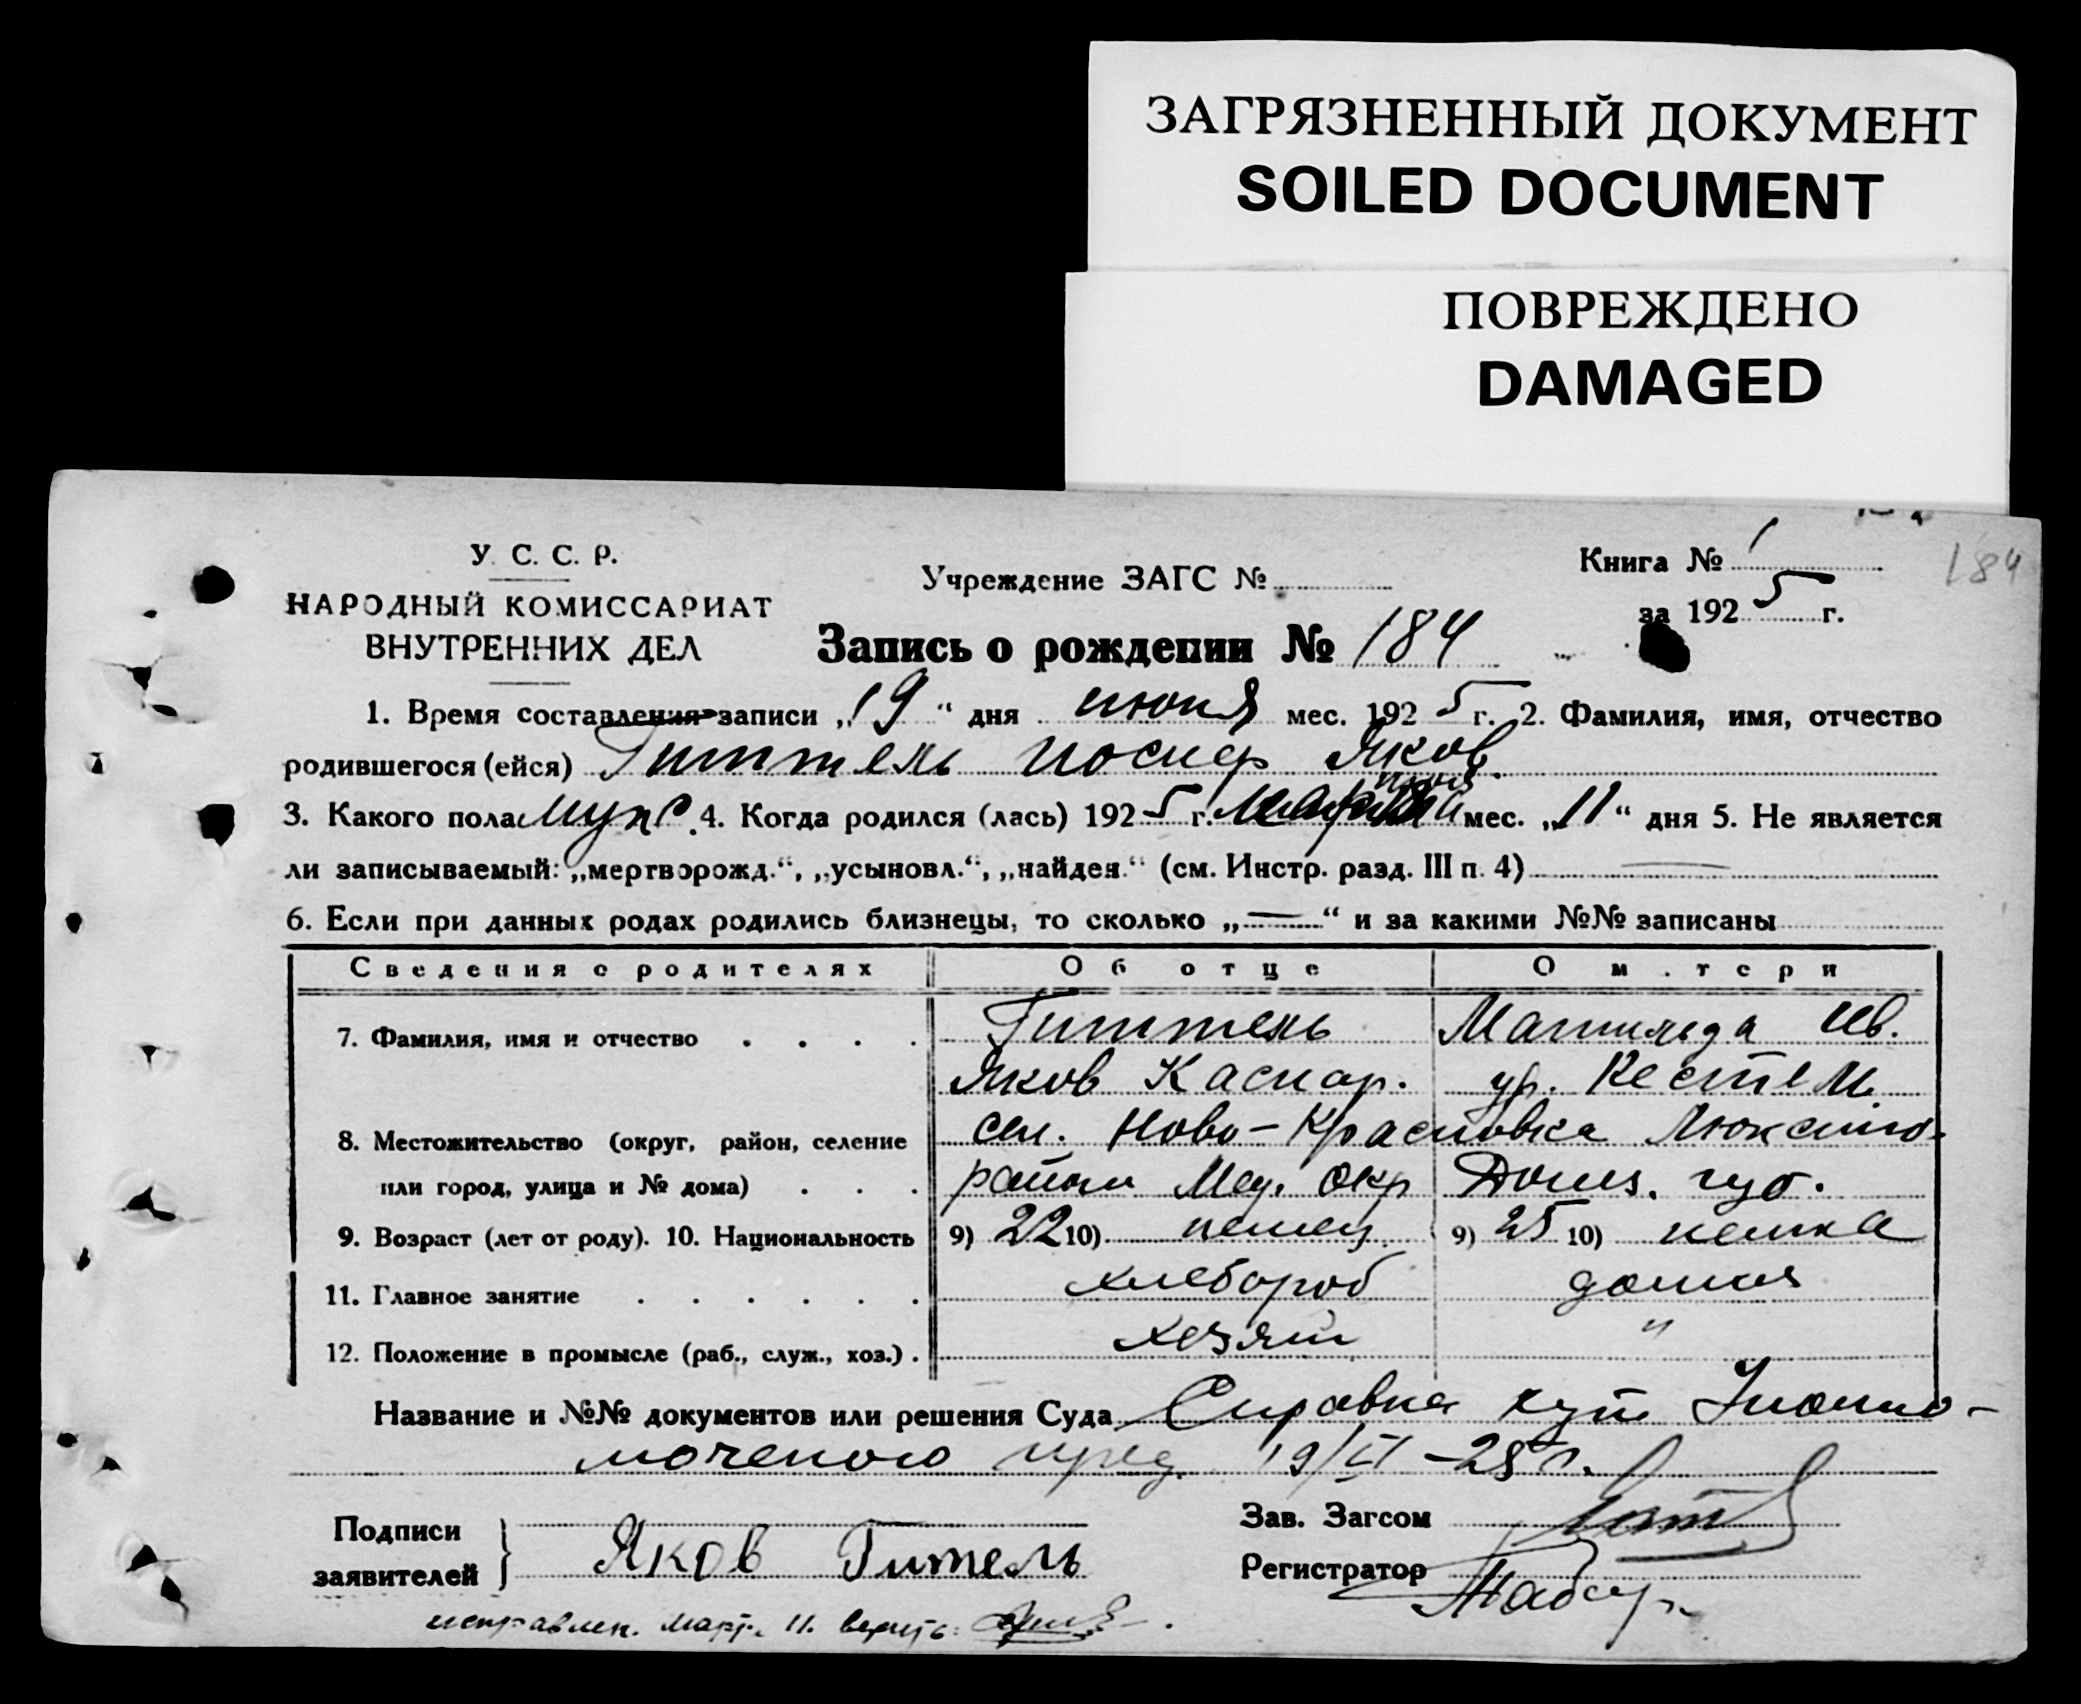 ЗАГРЯЗНЕННЫЙ ДОКУМЕНТ
SOILED DOCUMENT
ПОВРЕЖДЕНО
DAMAGED
У. С. С. Р.
НАРОДНЫЙ КОМИССАРИАТ
ВНУТРЕННИХ ДЕЛ
Учреждение ЗАГС №
Книга № 1
184
за 1925 г.
Запись о рождении № 184
1. Время составления записи „19“ дня июня мес. 1925 г. 2. Фамилия, имя, отчество
родившегося (ейся) Гиттель Иосиф Яков.
3. Какого пола муж. 4. Когда родился (лась) 1925 г. мес. „11“ дня 5. Не является
ли записываемый: „мертворожд.“, „усыновл.“, „найден.“ (см. Инстр. разд. III п. 4) —
6. Если при данных родах родились близнецы, то сколько „—“ и за какими №№ записаны
Сведения о родителях Об отце О м.тери
7. Фамилия, имя и отчество . . . . Гиттель Матильда Ив.
Яков Каспар. ур. Кестель
8. Местожительство (округ, район, селение сел. Ново-Красновка Люксем.
или город, улица и № дома) . . . района Мар. Окр Донец. губ.
9. Возраст (лет от роду). 10. Национальность 9) 22 10) немец 9) 25 10) немка
11. Главное занятие . . . . . . хлебороб домаш
12. Положение в промысле (раб., служ., хоз.) . хозяин "
Название и №№ документов или решения Суда Справка Уполно-
моченого пред. 19/VI-25 г.
Подписи
заявителей } Яков Гитель
Зав. Загсом
Регистратор
исправлен. март. 11. верить: